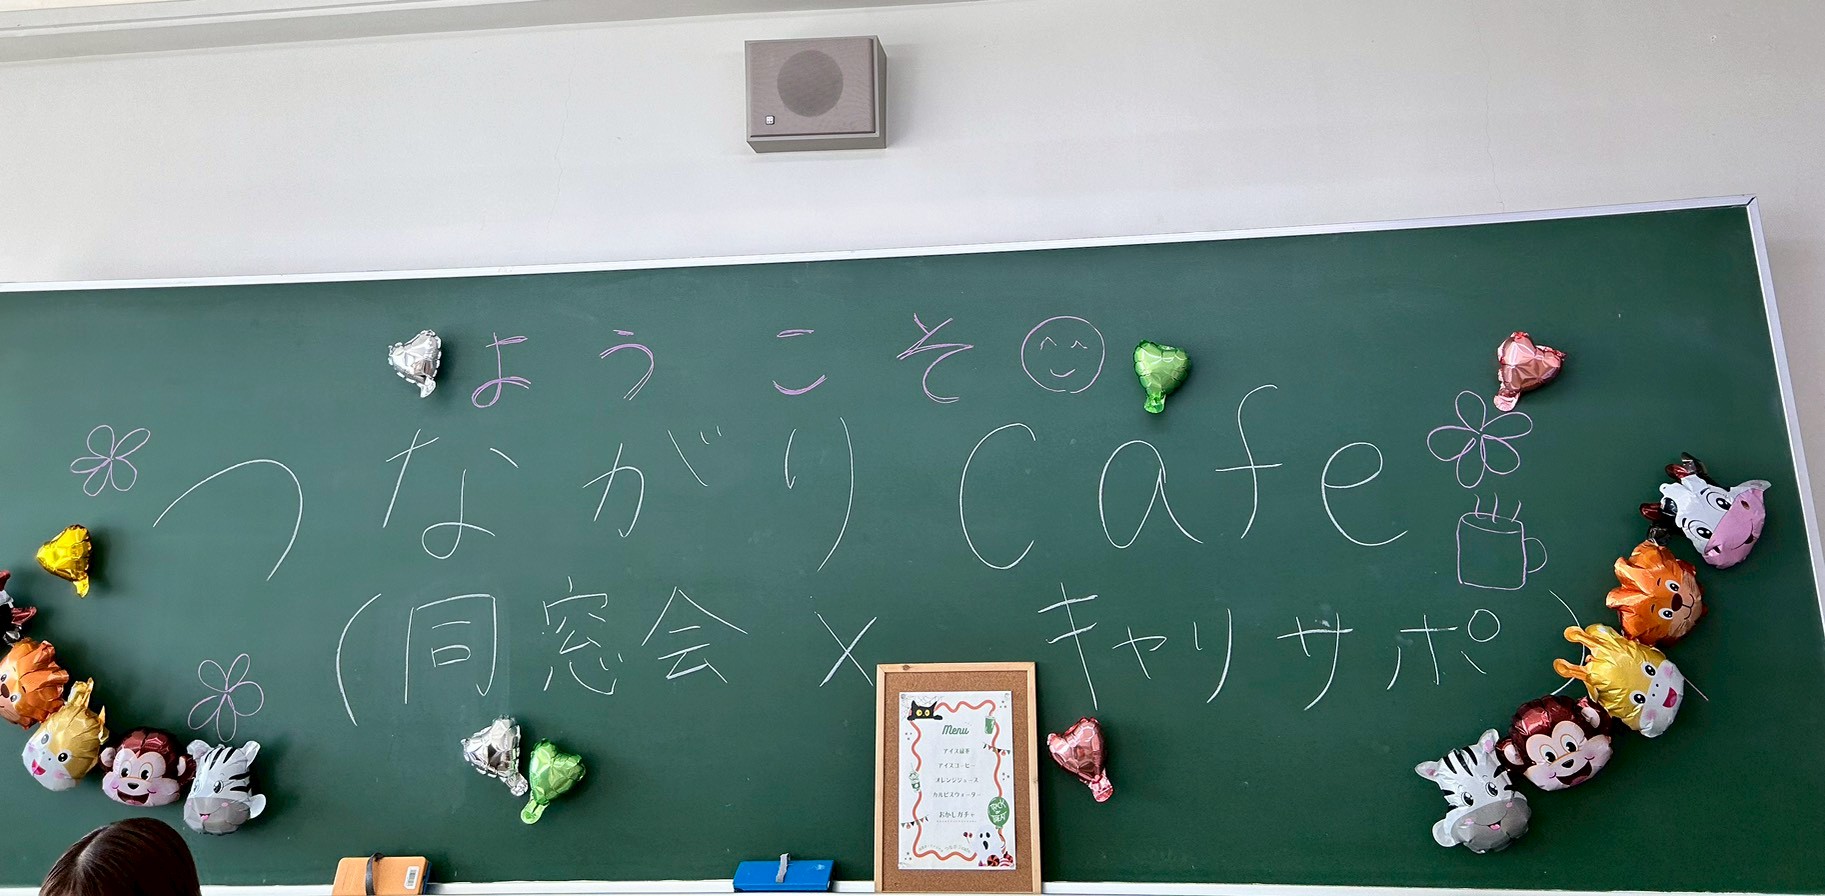 ようこそ
つながりCafe
(同窓会×キャリサポ)
Menu
アイス緑茶
アイスコーヒー
オレンジジュース
カルピスウォーター
おかしガチャ
TRICK
TREAT